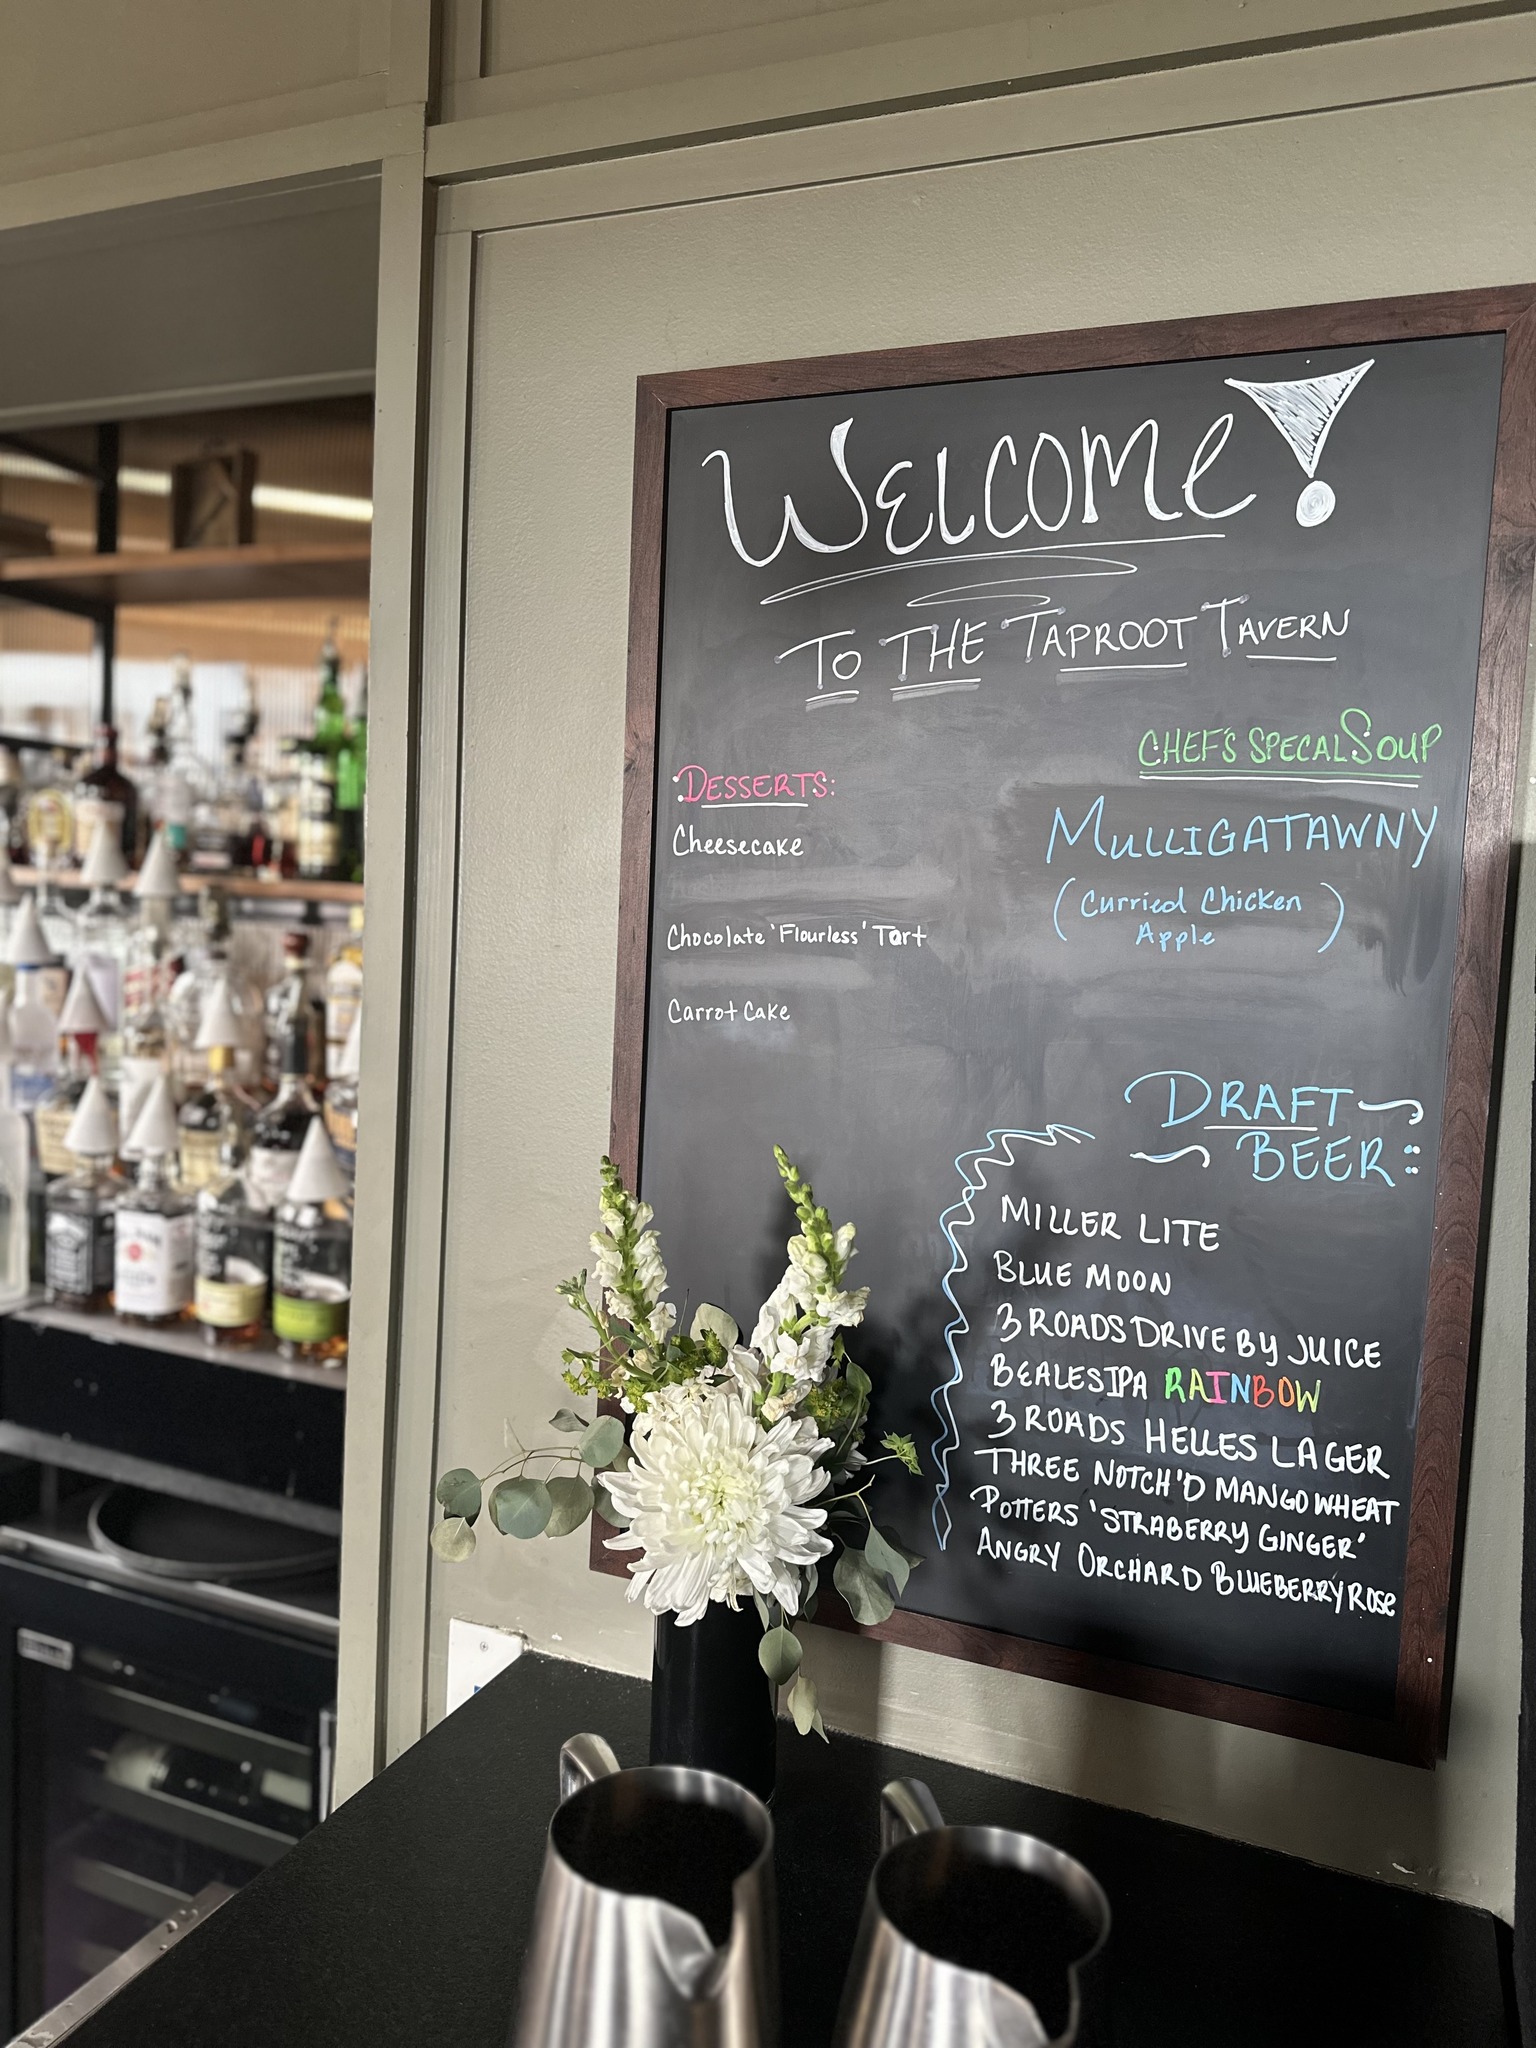 WELCOME!
TO THE TAPROOT TAVERN
DESSERTS:
Cheesecake
Chocolate 'Flourless' Tart
Carrot Cake
CHEF'S SPECAL SOUP
MULLIGATAWNY
(Curried Chicken
Apple)
DRAFT
BEER:
MILLER LITE
BLUE MOON
3 ROADS DRIVE BY JUICE
BEALES IPA RAINBOW
3 ROADS HELLES LAGER
THREE NOTCH'D MANGO WHEAT
POTTERS 'STRABERRY GINGER'
ANGRY ORCHARD BLUEBERRY ROSE